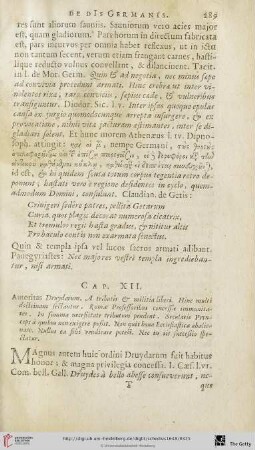 DE DIS GERMANIS. 289
res sunt aliorum saunis. Sauniorum vero acies major
est, quam gladiorum. Parthorum in directum fabricata
est, pars incurvos per omnia habet reflexus, ut in ictu
non tantum secent, verum etiam frangant carnes, hasti-
lique reducto vulnus convellent, & dilancinent. Tacit.
in l. de Mor. Germ. Quin & ad negotia, nec minus sæpe
ad convivia procedunt armati. Hinc crebræ ut inter vi-
nolentos rixæ, raro conviciis, sæpius cæde, & vulneribus
transiguntur. Diodor. Sic. l. v. Inter ipsos quoque epulas
causa ex jurgio quomodocumque accepta insurgere, & ex
provocatione, nihili vitæ jacturam æstimantes, inter se di-
gladiari solent. Et hunc morem Athenæus l. IV. Dipno-
soph. attingit: nempe Germani,
id est, & hi quidem scuta totum corpus tegentia retro de-
ponunt; hastati vero è regione desidentes in cyclo, quem-
admodum Domini, convivant. Claudian. de Getis:
Crinigeri sedere patres, pellita Getarum
Curia, quos plagis decorat numerosa cicatrix,
Et tremulos regit hasta gradus, & nititur altis
Pro baculo contis non exarmata senectus.
Quin & templa ipsa vel lucos sacros armati adibant.
Panegyristes: Nec majores vestri templa ingrediebau-
tur, nisi armati.
CAP. XII.
Auteritas Druydarum. A tributis & militia liberi. Hinc multi
disciplinam sectantur. Romæ Professoribus concessæ immunita-
tes. In summa necessitate tributum pendunt. Secularis Prin-
ceps à quibus non exigere possit. Non quivis bona Ecclesiastica abalien-
nare. Nullus ea sibi vendicare potest. Nec in iis successio spe-
ctatur.
MAgnus autem huic ordini Druydarum fait habitus
honor; & magna privilegia concessa. I. Cæs. l. VI.
Com. bell. Gall. Druydes à bello abesse consueverunt, ne-
T que